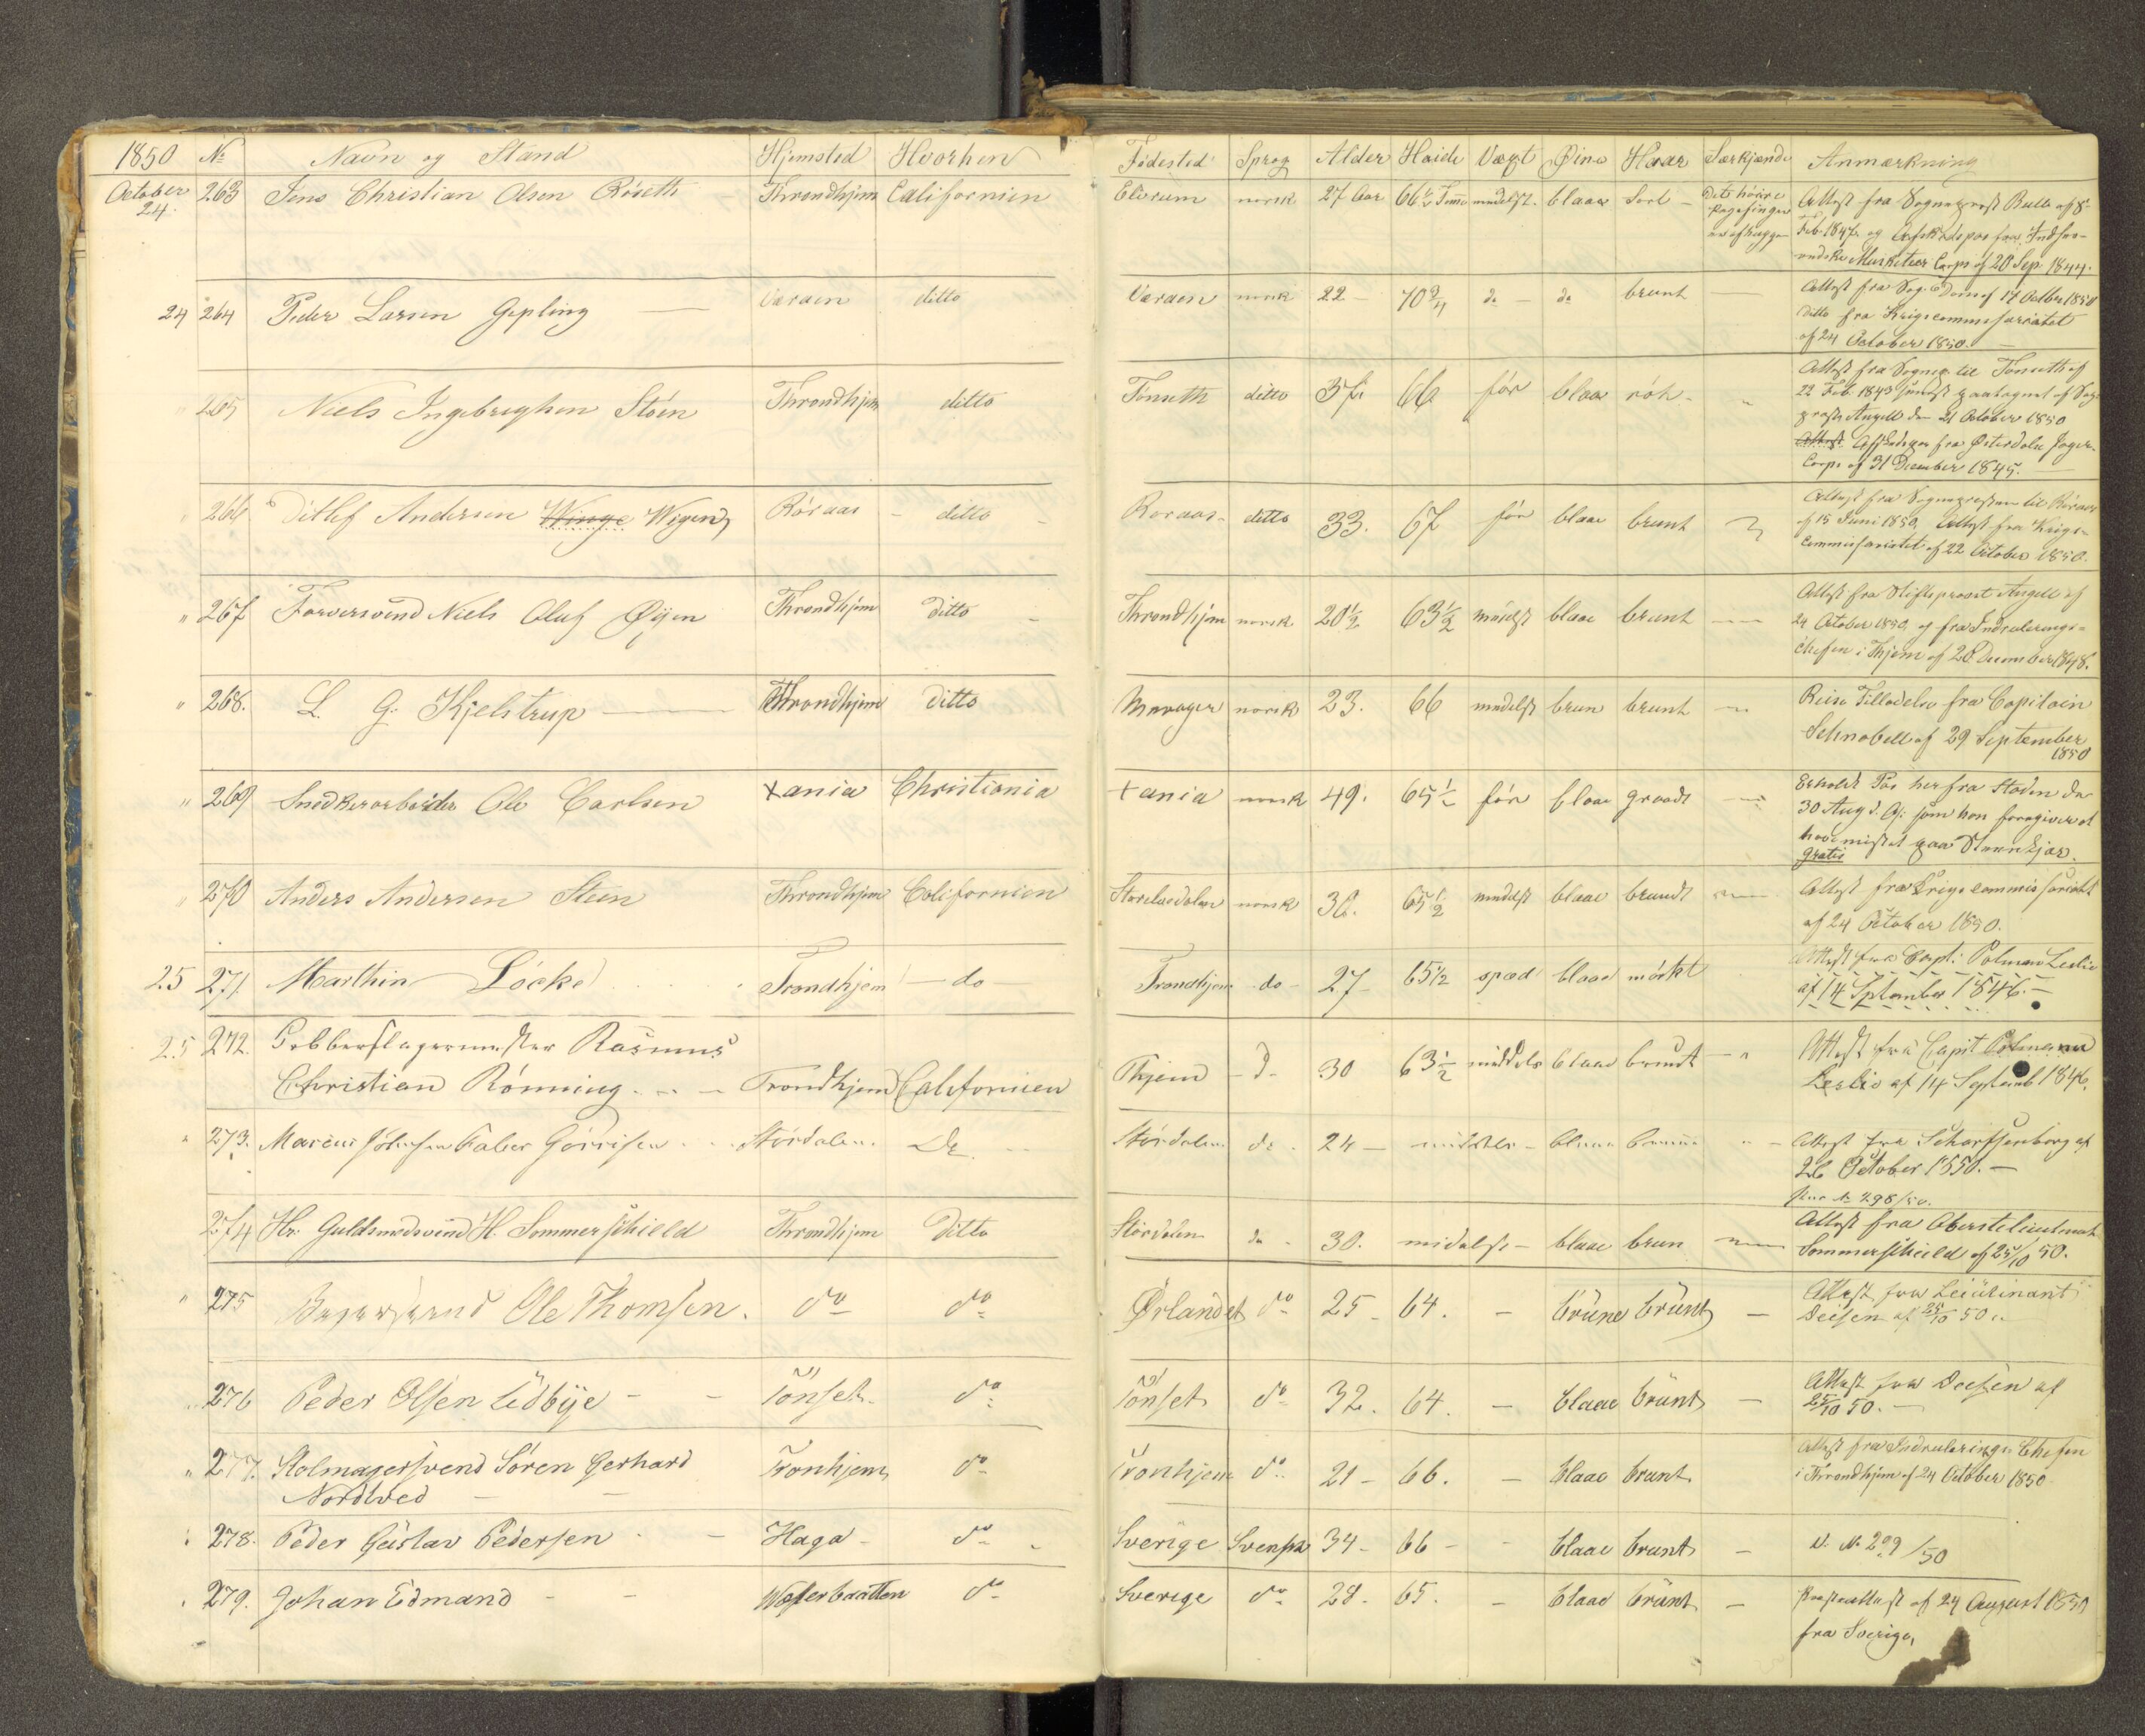 1850 No Navn og Stand Hjemsted Hvorhen Födested Sprog Alder Höide Væxt Øine Haar Særkjende Anmærkning
October 24. 263 Jens Christian Olsen Röseth Throndhjem Californien Elvrum norsk 27 Aar 66½ Tom middelst. blaae Sort - Attest fra Sogneprest
Feb. 1847 og Afskedspas fra
Musketeer Corps af 20 Sep. 1844.
24 264 Peder Larsen Gepling Værdalen ditto Værdalen norsk 22 - 70¾ do - do brunt Attest fra af 17 October 1850
Ditto fra Krigscommissariatet
af 24 October 1850.
" 265 Niels Ingebrigtsen Stöen Throndhjem ditto Tönseth ditto 37 66 för blaae röh - " Attest fra Sognep. til Tönseth af
22 Feb. 1843 paategnet af
Angell den 21 October 1850
Attest fra Österdalske Jæger
Corps af 31 December 1845.
" 266 Ditlef Andersen Winge Wigen Röraas - ditto - Roraas - ditto 33. 67 för blaae brunt Attest fra Sognepresten til Röraas
af 15 Juni 1850, Attest fra Krigs-
Commissariatet af 22 October 1850.
" 267 Farversvend Niels Oluf Öyen Throndhjem ditto - Throndhjem norsk 20½ 63½ middelst blaae brunt Attest fra Stiftsprovst Angell af
24 October 1850, og fra Indrulerings-
chefen i Thjem af 28 December 1848.
" 268. L. G. Kjelstrup Throndhjem ditto norsk 23. 66 middelst brun brunt Reise Tilladelse fra Capitain
Schnobell af 29 September
1850
" 269 Snedkerarbeider Ole Carlsen Xania Christiania Xania norsk 49. 65½ för blaae graadt Erholdt Pas herfra Staden den
30 Aug d. A: som han foregiver at
have mistet paa Steenkjær.
gratis
" 270 Anders Andersen Steen Throndhjem Californien norsk 30. 65½ middelst blaae brundt Attest fra Krigscommissariatet
af 24 October 1850.
25 271. Marthin Löcke Trondhjem - do - Trondhjem do - 27 65½ spæd blaae mörkt Attest fra Capt: Polman Leslie
af 14 Septembr 1846. -
25 272. Kobberslagermester Rasmus
Christian Rönning - Trondhjem Californien Thjem - D - 30 63½ middels blaae brundt - " Attest fra Capit Polmann
Leslie af 14 Septemb 1846.
" 273. Marius Faber Görrisen Stördalen. Do Stördalen do. 24 - middels - blaae Attest fra Scharffenberg af
26 October 1850. -
No 298/50.
274 Hr. Guldsmedsvend H. Sommerschield Throndhjem Ditto Stördalen do - 30. midelst - blaae brun Attest fra Oberstlieutenant
Sommerschield af 25/10 50.
" 275 Ole Thomsen. do do Ørlandet do 25 - 64. - brune brünt - Attest fra Leiütinant
af 25/10 50.
" 276 Peder Olsen Udbÿe - - Tönset. do Tönset do 32. 64. - blaae brünt - Attest fra af
25/10 50. -
" 277. Sören Gerhard
Nordtved - - Tronhjem do Tronhjem do 21 - 66. - blaae brunt Attest fra Indrulerings Chefen
i Throndhjem af 24 October 1850.
" 278. Peder Güstav Pedersen - - Haga - do Sverige Svensk 34 - 66 - - blaae brünt - N. No 299/50
" 279. Johan Edmand - - do Sverige do 28 - 65. - blaae brünt - af 24 August 1850
fra Sverige,